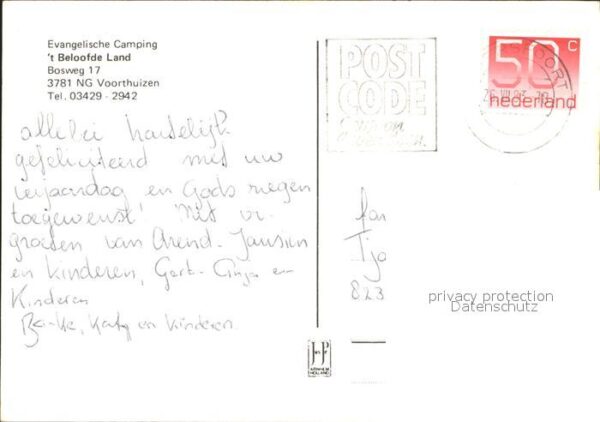 Evangelische Camping
't Beloofde Land
Bosweg 17
3781 NG Voorthuizen
Tel. 03429 - 2942
allebei hartelijk
gefeliciteerd met uw
verjaardag en Gods zegen
toegewenst! Met vr.
groeten van Arend-Jansien
en kinderen, Gert-
en
Kinderen
en kinderen.
POST
CODE
50 c
nederland
fam
823
privacy protection
Datenschutz
JosP
ARNHEM
HOLLAND